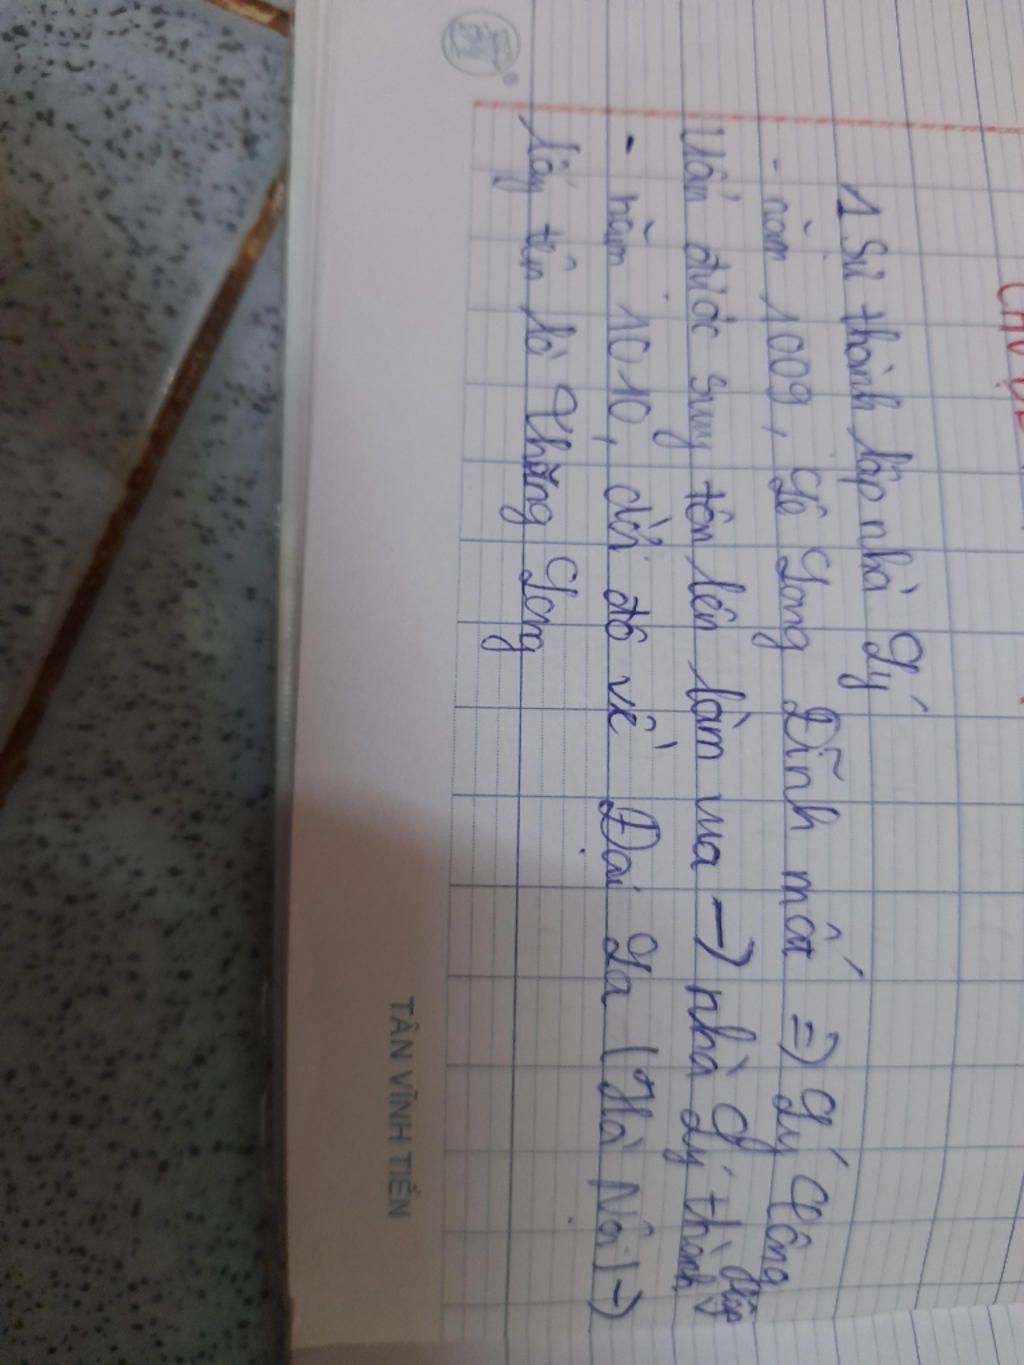 1 Sự thành lập nhà Lý
- năm 1009, Lê Long Đĩnh mất => Lý Công
Uẩn được suy tôn lên làm vua -> nhà Lý thành lập
- năm 1010, dời đô về Đại La (Hà Nội) ->
lấy tên là Thăng Long
TÂN VĨNH TIẾN